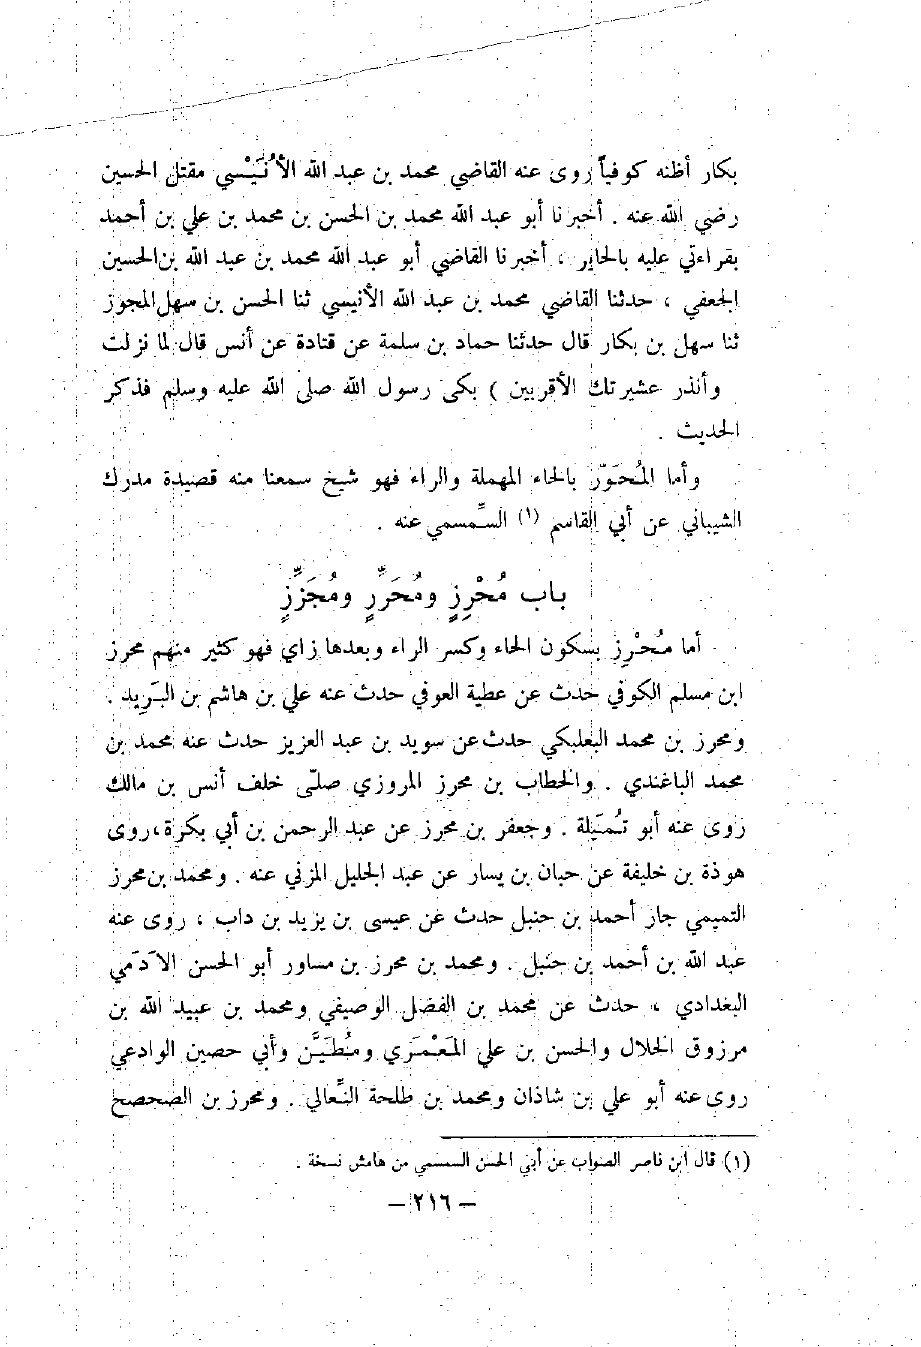 بكار أظنه كوفياً روى عنه القاضي محمد بن عبد الله الأُنَيْسي مقتل الحسين
رضي الله عنه . أخبرنا أبو عبد الله محمد بن الحسن بن محمد بن علي بن أحمد
بقراءتي عليه بالحاير ، أخبرنا القاضي أبو عبد الله محمد بن عبد الله بن الحسين
الجعفي ، حدثنا القاضي محمد بن عبد الله الأنيسي ثنا الحسن بن سهل المجوز
ثنا سهل بن بكار قال حدثنا حماد بن سلمة عن قتادة عن أنس قال لما نزلت
وأنذر عشيرتك الأقربين ) بكى رسول الله صلى الله عليه وسلم فذكر
الحديث .
وأما المُحَوّر بالحاء المهملة والراء فهو شيخ سمعنا منه قصيدة مدرك
الشيباني عن أبي القاسم (١) السِّمسمي عنه .
باب مُحْرِزٍ ومُحَرَّرٍ ومُجَزِّزٍ
أما مُحْرِز بسكون الحاء وكسر الراء وبعدها زاي فهو كثير منهم محرز
ابن مسلم الكوفي حدث عن عطية العوفي حدث عنه علي بن هاشم بن البَرِيد .
ومحرز بن محمد البعلبكي حدث عن سويد بن عبد العزيز حدث عنه محمد بن
محمد الباغندي . والخطاب بن محرز المروزي صلّى خلف أنس بن مالك
روى عنه أبو تُمَيلة . وجعفر بن محرز عن عبد الرحمن بن أبي بكرة ، روى
هوذة بن خليفة عن حبان بن يسار عن عبد الجليل المزني عنه . ومحمد بن محرز
التميمي جار أحمد بن حنبل حدث عن عيسى بن يزيد بن داب ، روى عنه
عبد الله بن أحمد بن حنبل . ومحمد بن محرز بن مساور أبو الحسن الآدَمي
البغدادي ، حدث عن محمد بن الفضل الوصيفي ومحمد بن عبيد الله بن
مرزوق الخلال والحسن بن علي المَعْمَري ومُطَيَّن وأبي حصين الوادعي
روى عنه أبو علي بن شاذان ومحمد بن طلحة النِّعالي . ومحرز بن الصحصح
(١) قال ابن ناصر الصواب عن أبي الحسن السمسمي من هامش نسخة .
— ٢١٦ —